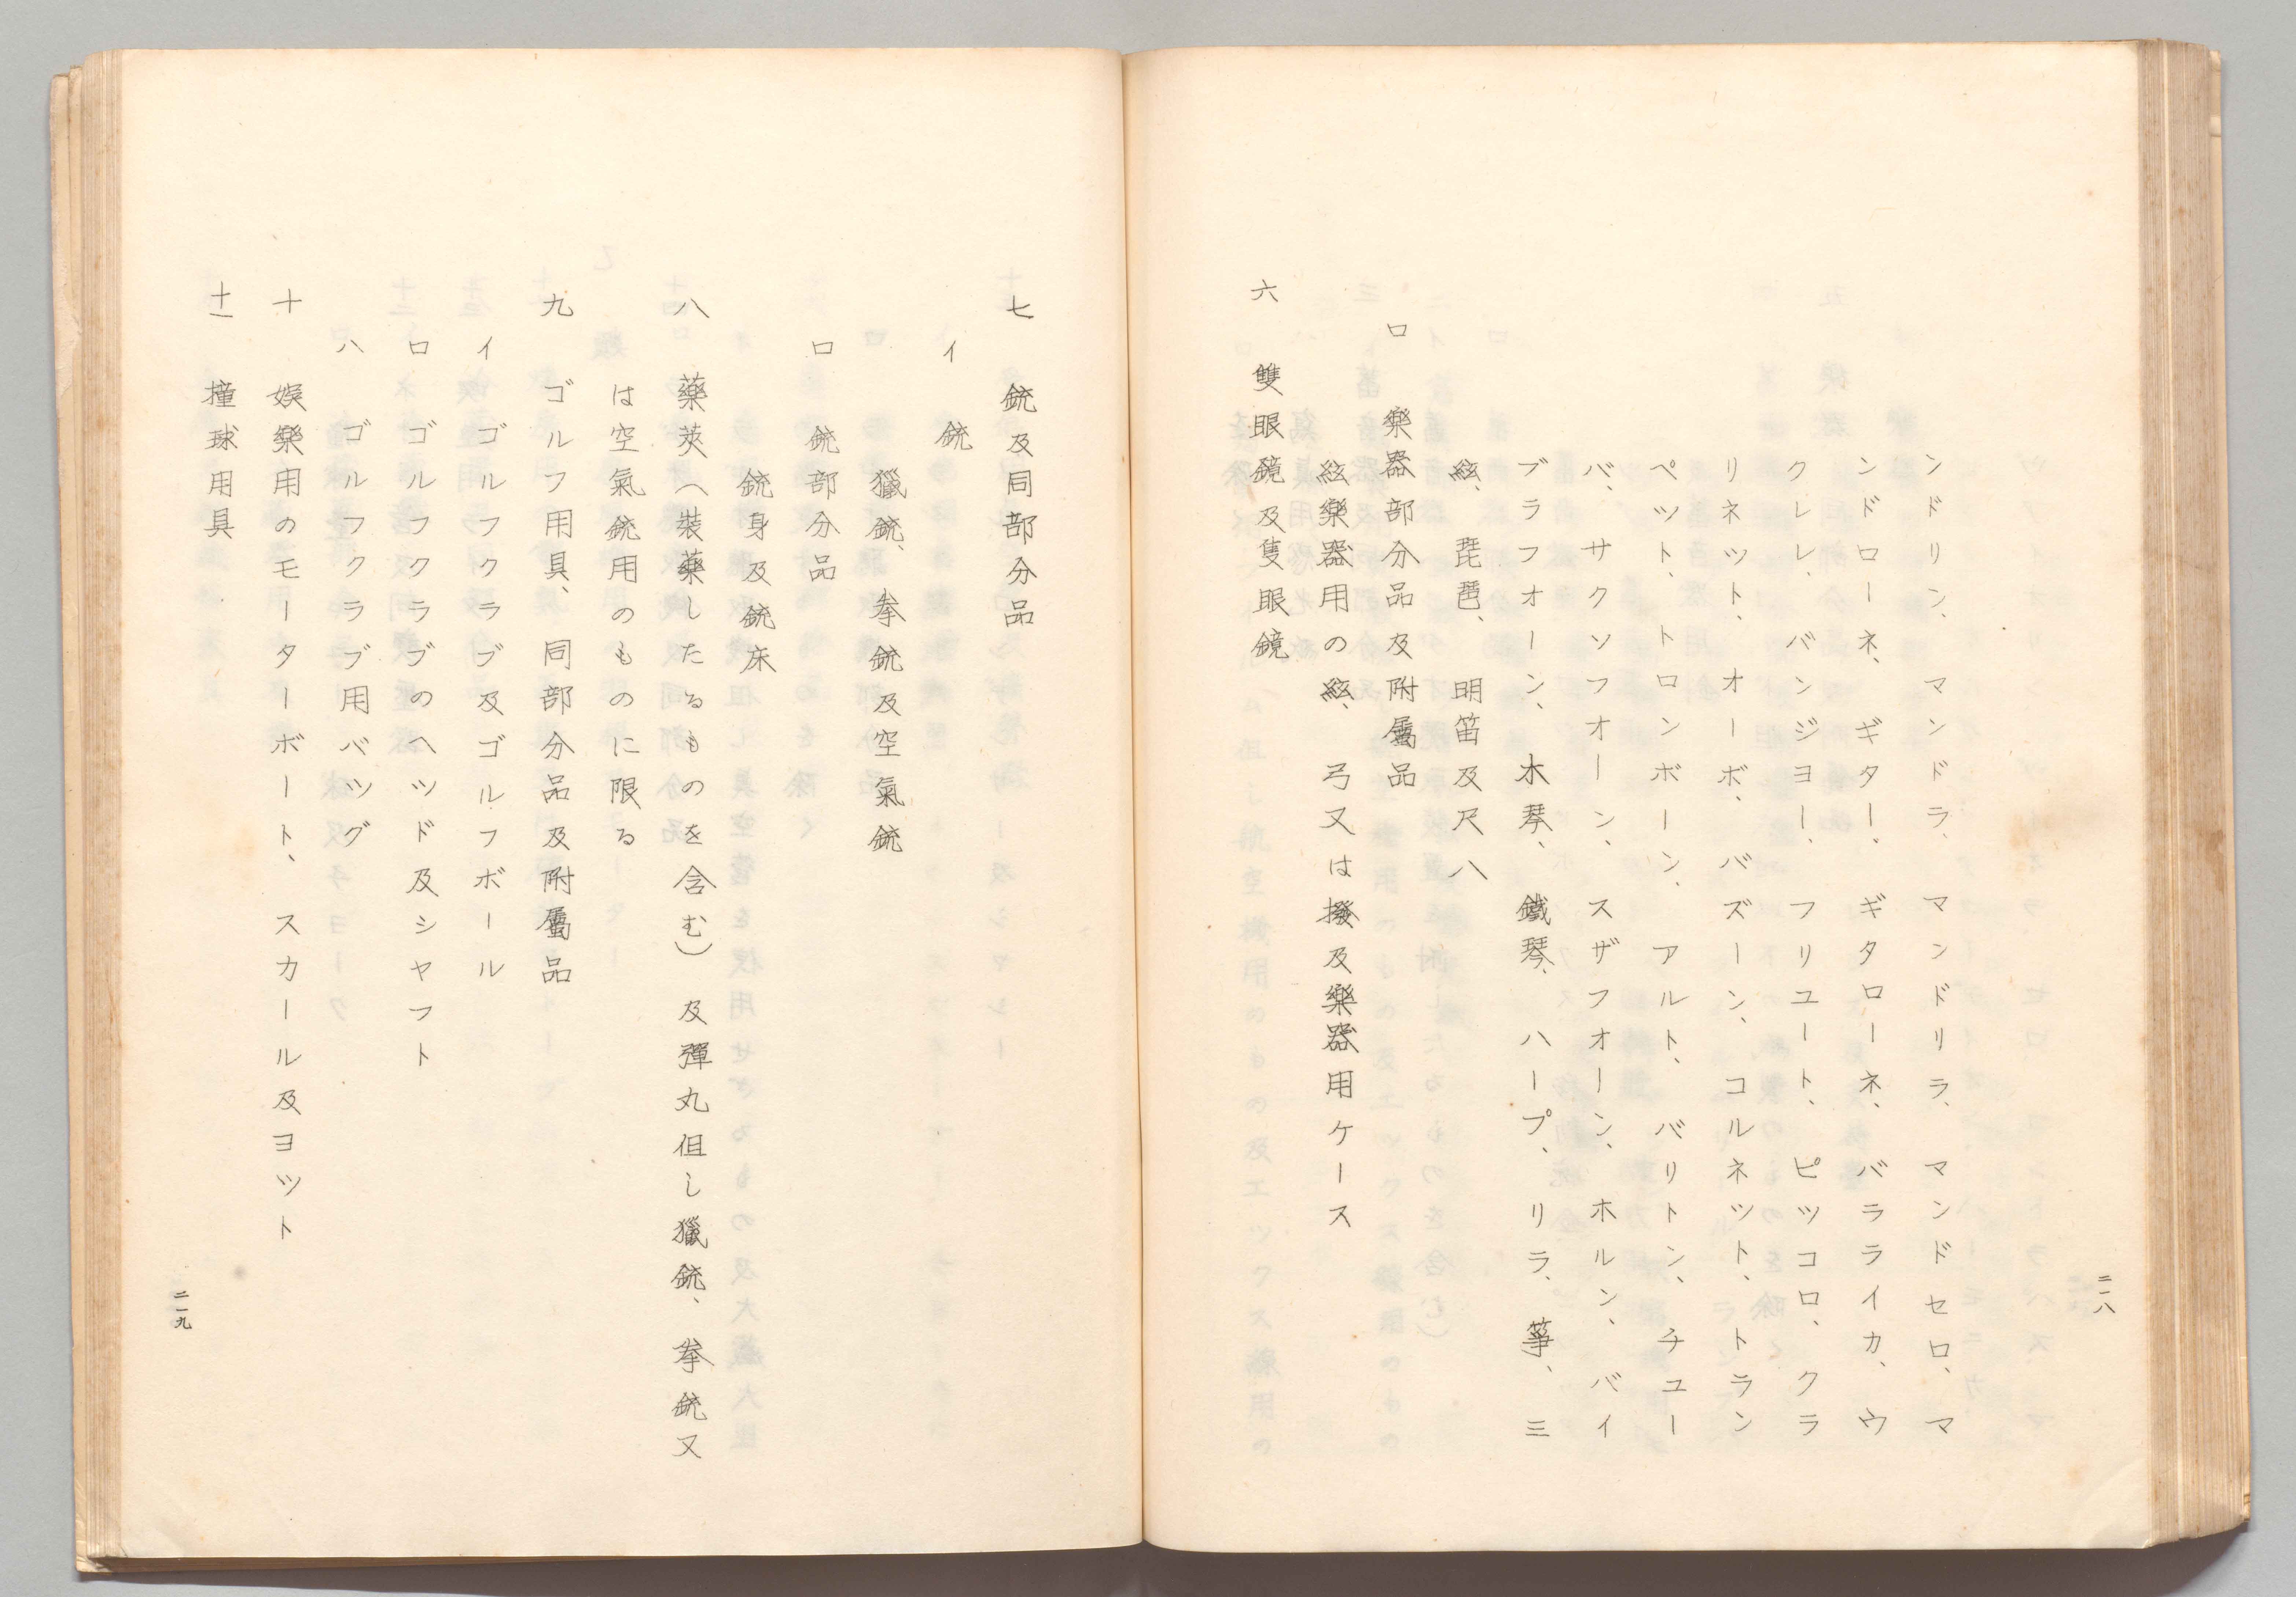 ンドリン、マンドラ、マンドリラ、マンドセロ、マ
ンドローネ、ギター、ギタローネ、バラライカ、ウ
クレレ、バンジヨー、フリユート、ピツコロ、クラ
リネツト、オーボ、バズーン、コルネツト、トラン
ペツト、トロンボーン、アルト、バリトン、チユー
バ、サクソフオーン、スザフオーン、ホルン、バイ
ブラフオーン、木琴、鐵琴、ハープ、リラ、箏、三
絃、琵琶、明笛及尺八
ロ 樂器部分品及附屬品
絃樂器用の絃、弓又は撥及樂器用ケース
六 雙眼鏡及隻眼鏡
二一八
七 銃及同部分品
イ 銃
獵銃、拳銃及空氣銃
ロ 銃部分品
銃身及銃床
八 藥莢(裝藥したるものを含む)及彈丸但し獵銃、拳銃又
は空氣銃用のものに限る
九 ゴルフ用具、同部分品及附屬品
イ ゴルフクラブ及ゴルフボール
ロ ゴルフクラブのヘツド及シヤフト
ハ ゴルフクラブ用バツグ
十 娯樂用のモーターボート、スカール及ヨツト
十一 撞球用具
二一九